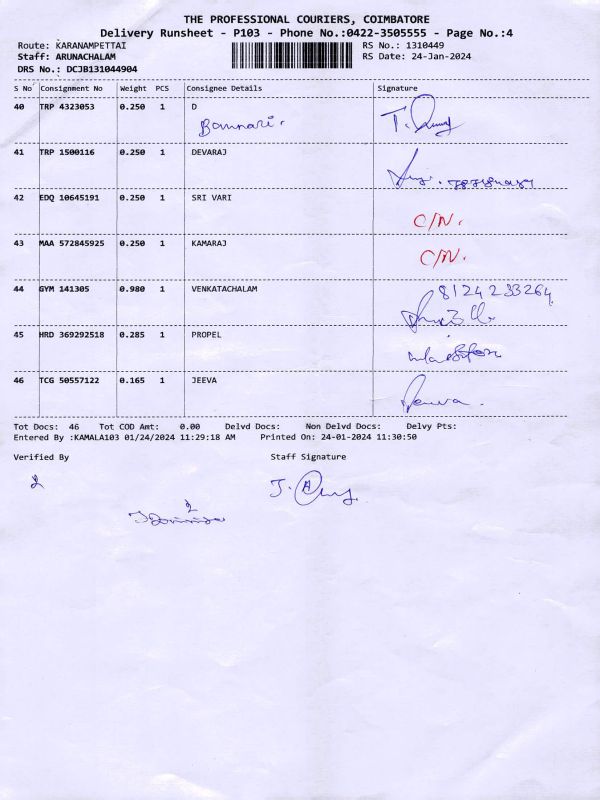 THE PROFESSIONAL COURIERS, COIMBATORE
Delivery Runsheet - P103 - Phone No.:0422-3505555 - Page No.:4
Route: KARANAMPETTAI RS No.: 1310449
Staff: ARUNACHALAM RS Date: 24-Jan-2024
DRS No.: DCJB131044904
S No Consignment No Weight PCS Consignee Details Signature
40 TRP 4323053 0.250 1 D
Bannari.
41 TRP 1500116 0.250 1 DEVARAJ
42 EDQ 10645191 0.250 1 SRI VARI
C/N.
43 MAA 572845925 0.250 1 KAMARAJ
C/N.
44 GYM 141305 0.980 1 VENKATACHALAM 8124233264
45 HRD 369292518 0.285 1 PROPEL
46 TCG 50557122 0.165 1 JEEVA
Tot Docs: 46 Tot COD Amt: 0.00 Delvd Docs: Non Delvd Docs: Delvy Pts:
Entered By :KAMALA103 01/24/2024 11:29:18 AM Printed On: 24-01-2024 11:30:50
Verified By Staff Signature